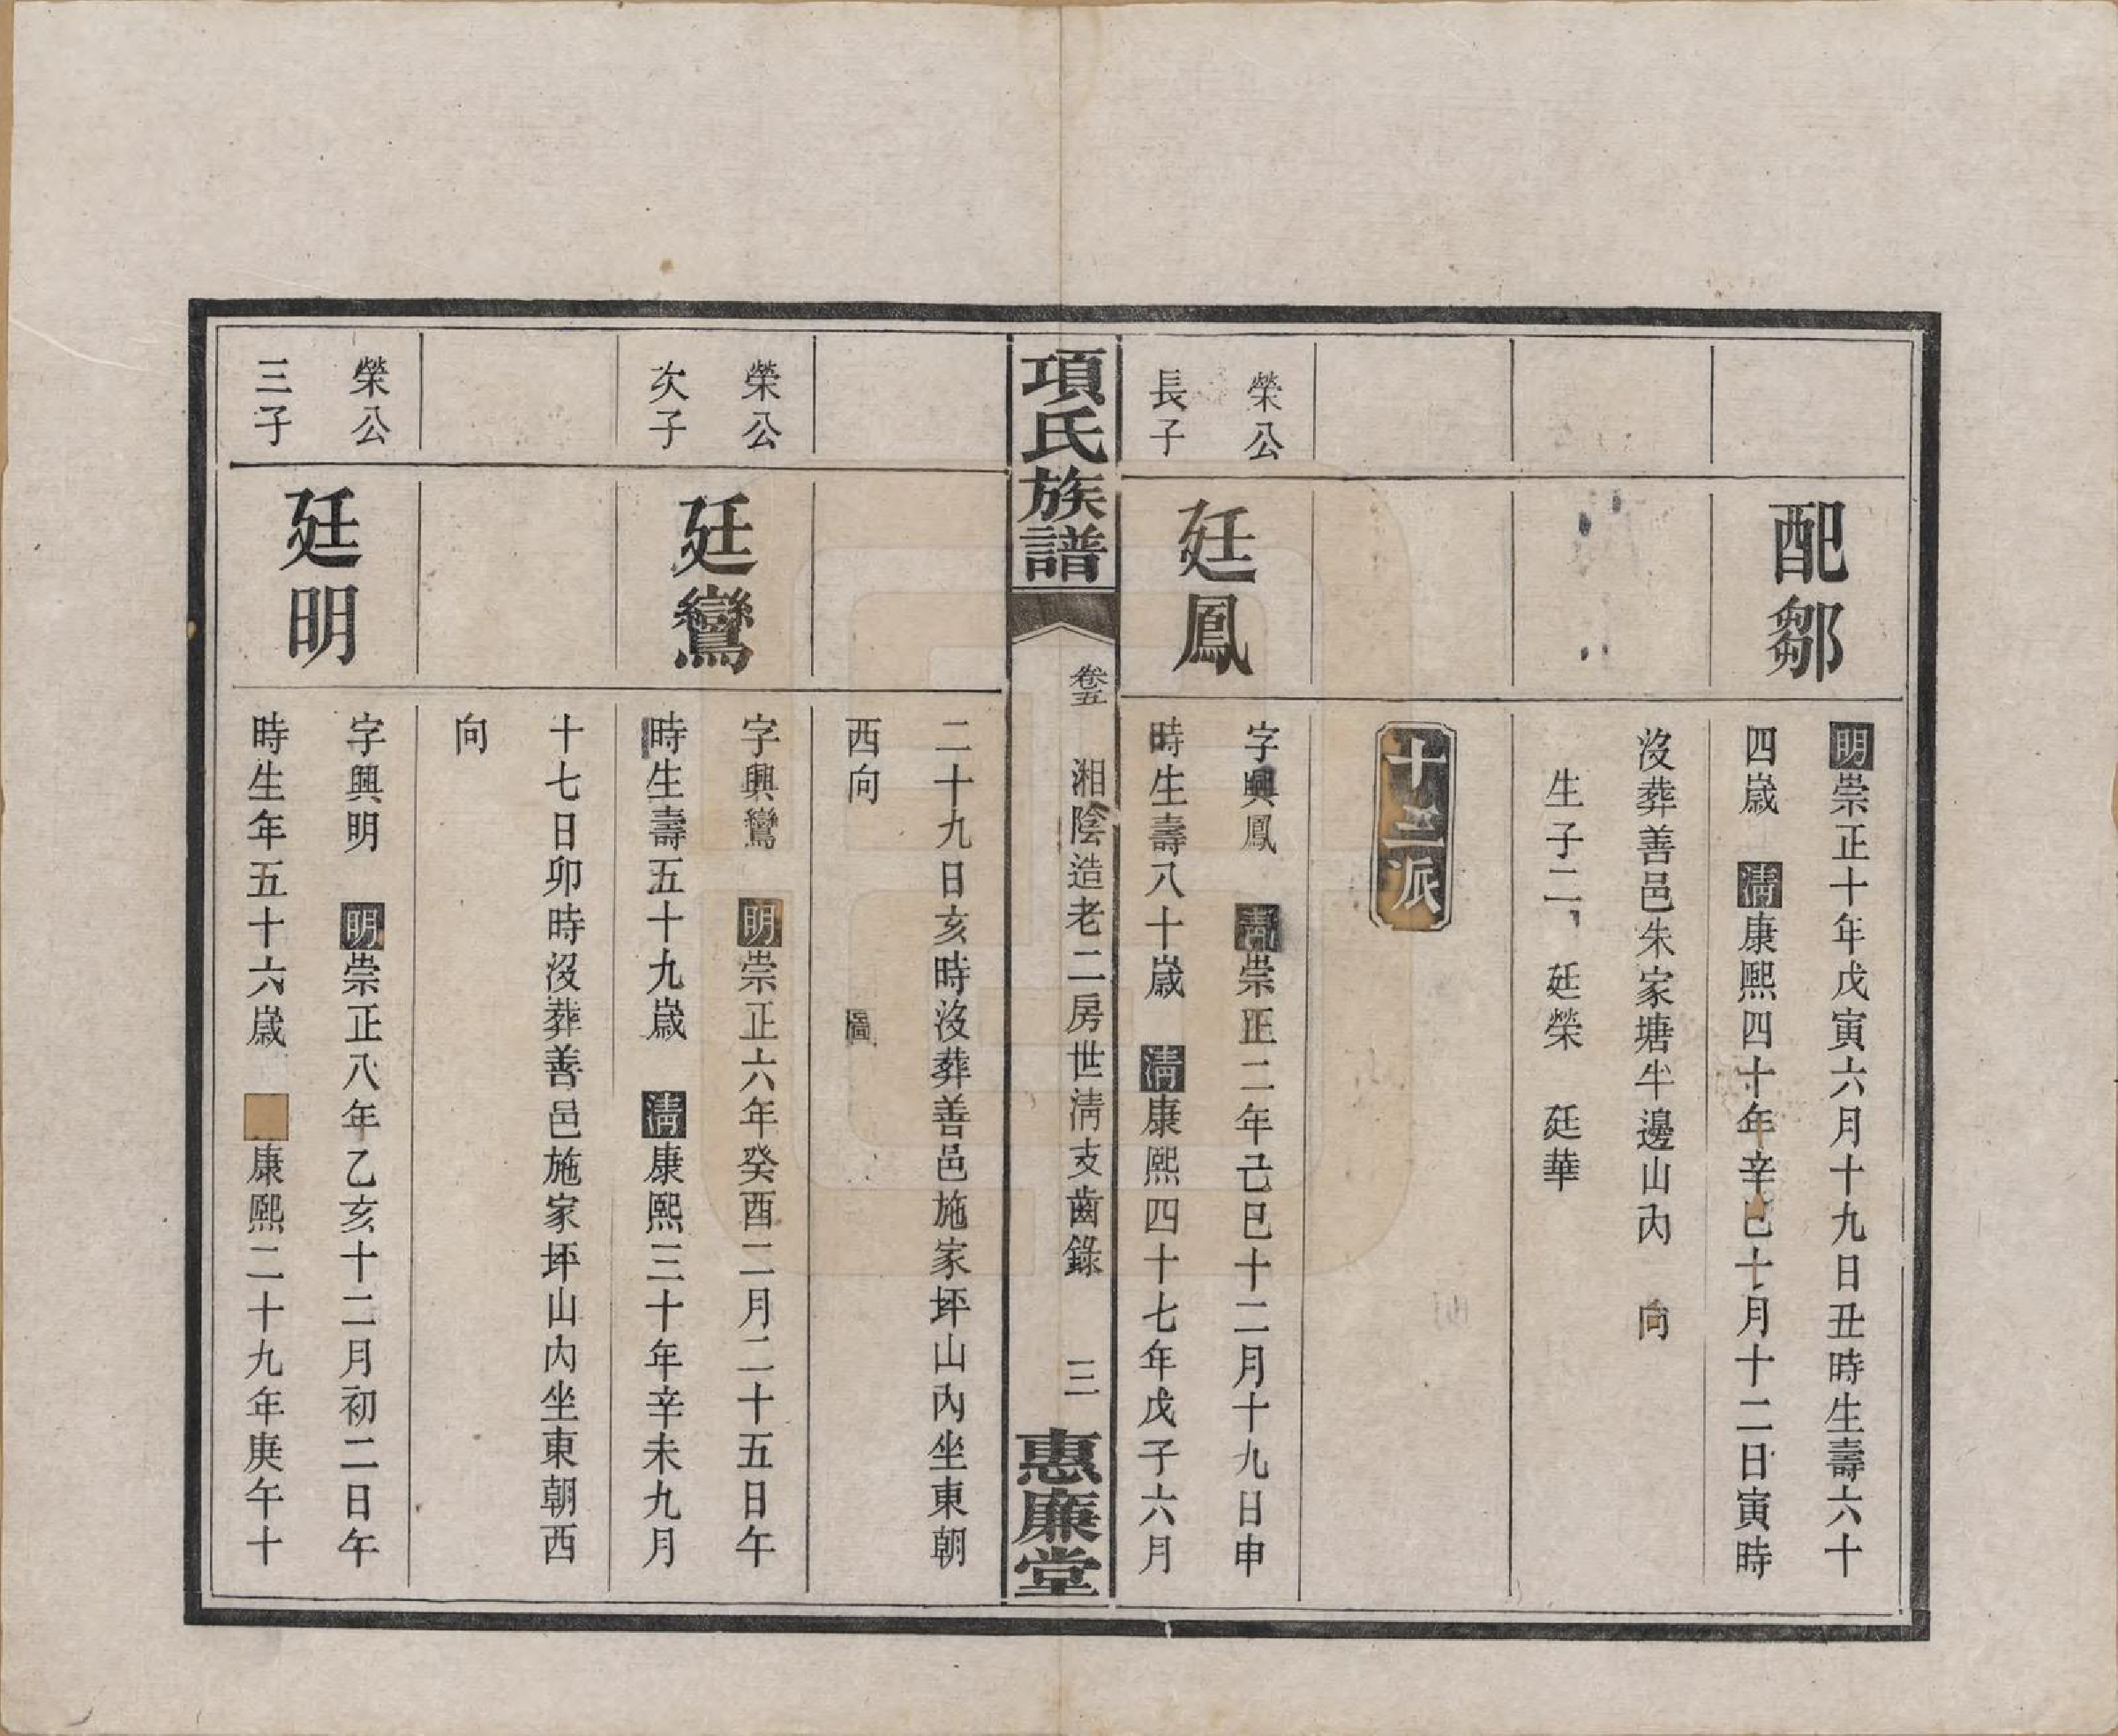 配鄒
明崇正十年戊寅六月十九日丑時生壽六十
四歲　清康熙四十年辛巳十月十二日寅時
沒葬善邑朱家塘半邊山內　向
生子二　廷榮　廷華
十三派
榮公
長子
廷鳳
字興鳳　清崇正二年己巳十二月十九日申
時生壽八十歲　清康熙四十七年戊子六月
項氏族譜
卷五　湘陰造老二房世清支齒錄　三
惠廉堂
二十九日亥時沒葬善邑施家坪山內坐東朝
西向
榮公
次子
廷鸞
字興鸞　明崇正六年癸酉二月二十五日午
時生壽五十九歲　清康熙三十年辛未九月
十七日卯時沒葬善邑施家坪山內坐東朝西
向
榮公
三子
廷明
字興明　明崇正八年乙亥十二月初二日午
時生年五十六歲　康熙二十九年庚午十